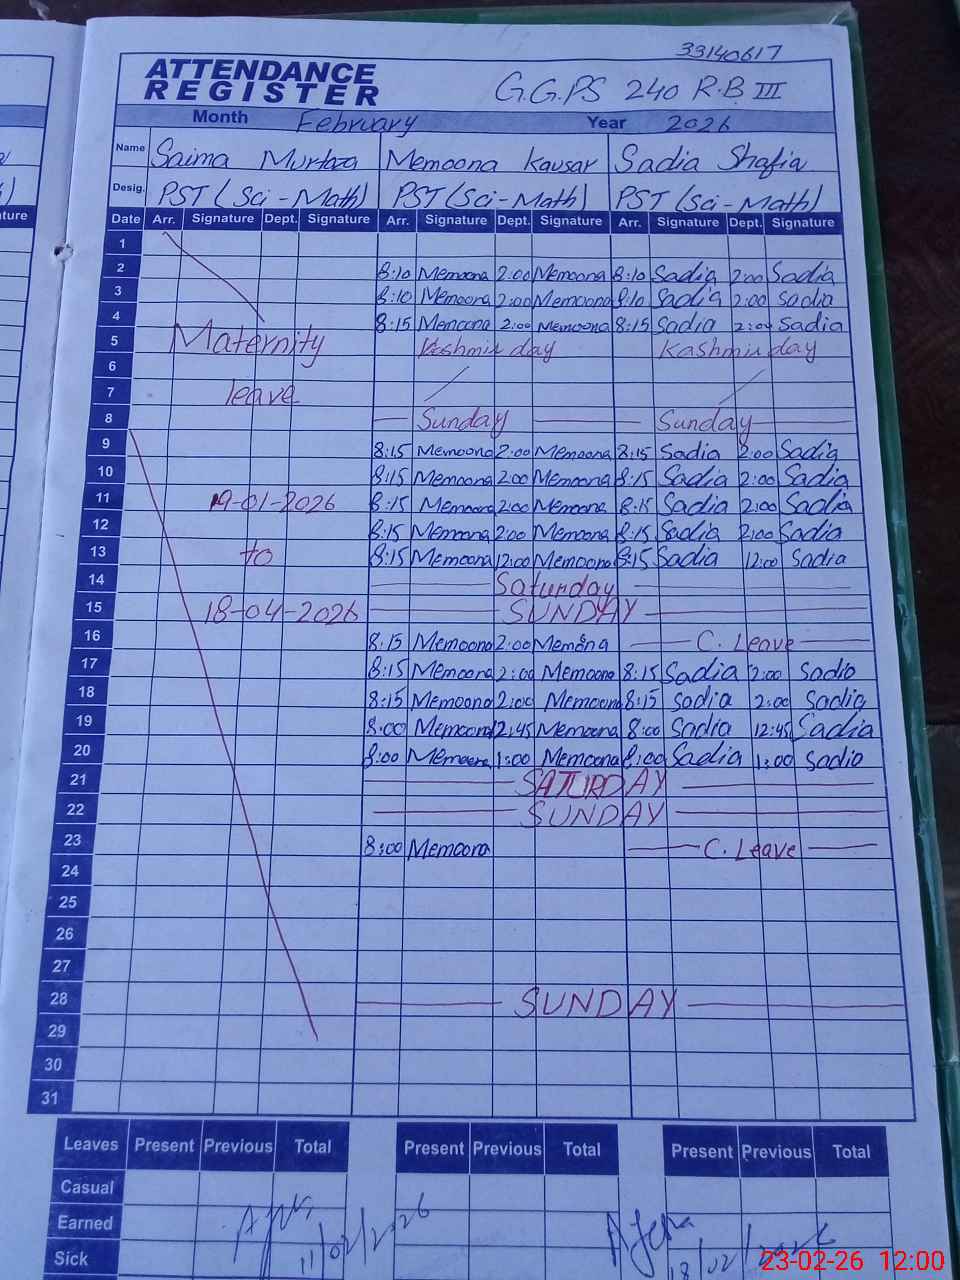 33140617
ATTENDANCE
REGISTER
G.G.PS 240 R.B III
Month February Year 2026
Name Saima Murtaza Memoona Kausar Sadia Shafia
Desig. PST (Sci-Math) PST (Sci-Math) PST (Sci-Math)
Date Arr. Signature Dept. Signature Arr. Signature Dept. Signature Arr. Signature Dept. Signature
1
2 8:10 Memoona 2:00 Memoona 8:10 Sadia 2:00 Sadia
3 8:10 Memoona 2:00 Memoona 8:10 Sadia 2:00 Sadia
4 8:15 Memoona 2:00 Memoona 8:15 Sadia 2:00 Sadia
5 Maternity Kashmir day Kashmir day
6
7 leave
8 Sunday Sunday
9 8:15 Memoona 2:00 Memoona 8:15 Sadia 2:00 Sadia
10 8:15 Memoona 2:00 Memoona 8:15 Sadia 2:00 Sadia
11 19-01-2026 8:15 Memoona 2:00 Memoona 8:15 Sadia 2:00 Sadia
12 8:15 Memoona 2:00 Memoona 8:15 Sadia 2:00 Sadia
13 to 8:15 Memoona 12:00 Memoona 8:15 Sadia 12:00 Sadia
14 Saturday
15 18-04-2026 SUNDAY
16 8:15 Memoona 2:00 Memona C. Leave
17 8:15 Memoona 2:00 Memoona 8:15 Sadia 2:00 Sadia
18 8:15 Memoona 2:00 Memoona 8:15 Sadia 2:00 Sadia
19 8:00 Memoona 12:45 Memoona 8:00 Sadia 12:45 Sadia
20 8:00 Memoona 1:00 Memoona 8:00 Sadia 1:00 Sadia
21 SATURDAY
22 SUNDAY
23 8:00 Memoona C. Leave
24
25
26
27
28 SUNDAY
29
30
31
Leaves Present Previous Total Present Previous Total Present Previous Total
Casual
Earned
Sick
11/02/2026
18/02/2026
23-02-26 12:00